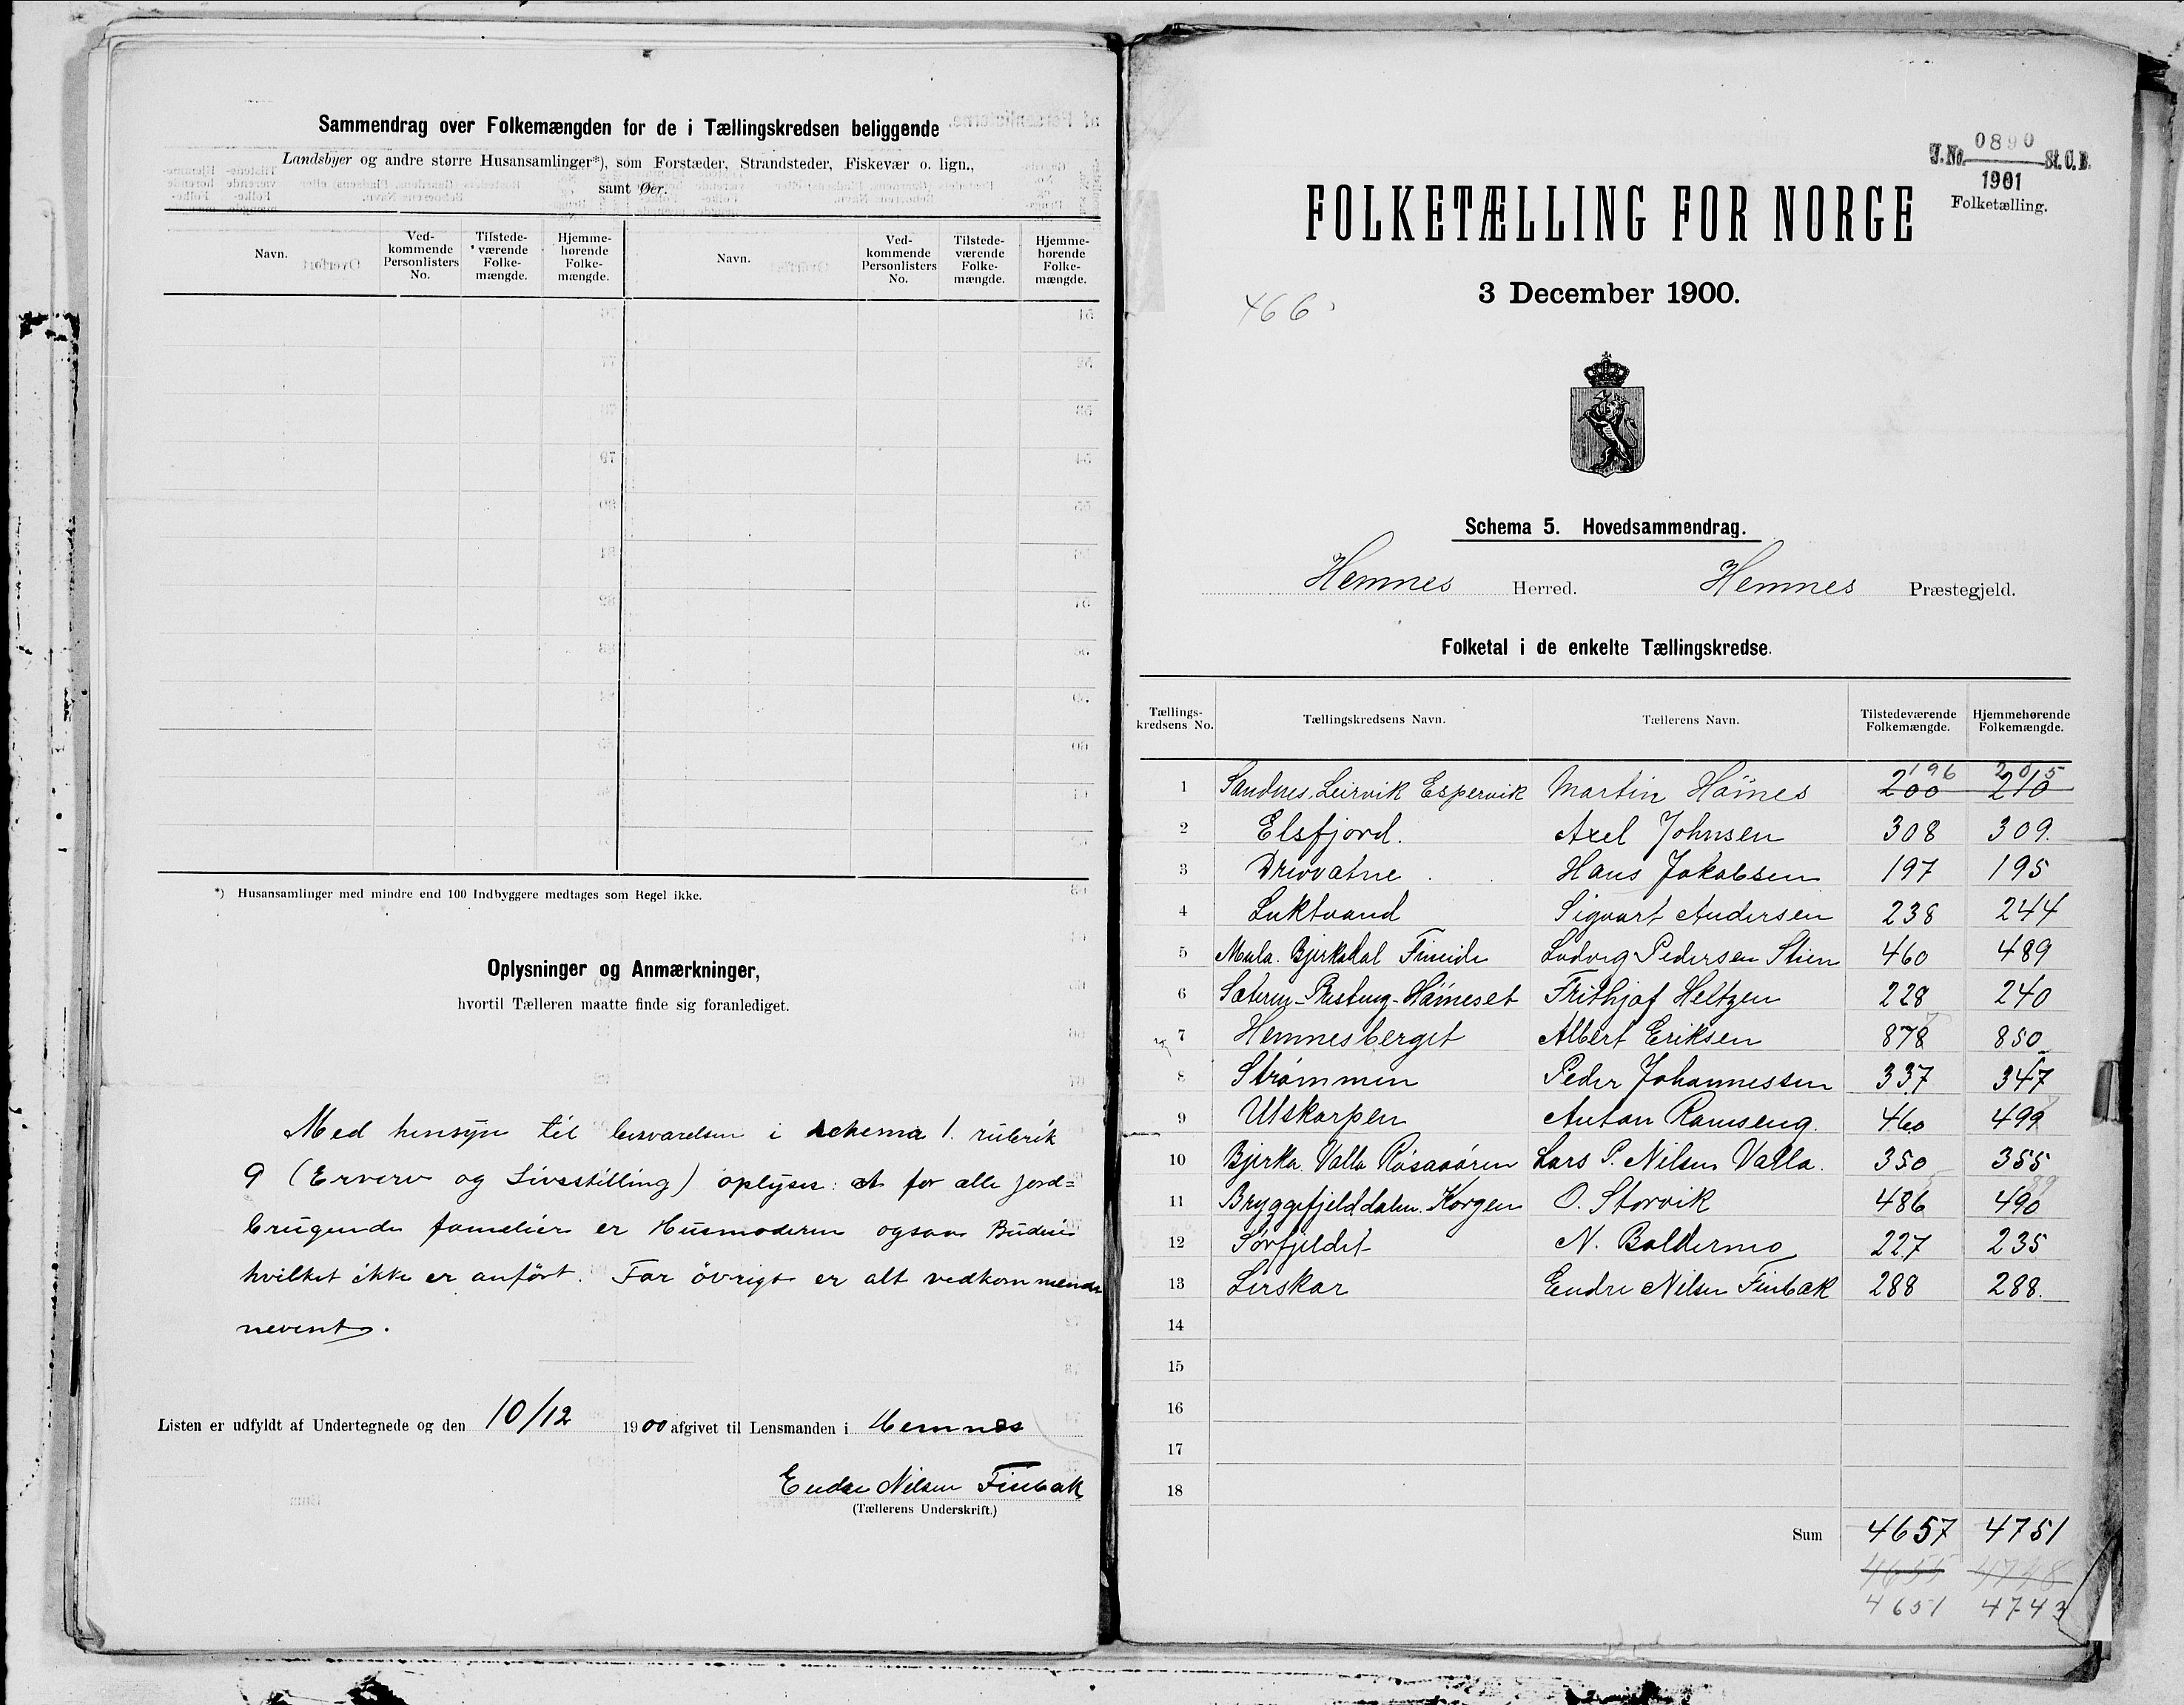 Sammendrag over Folkemængden for de i Tællingskredsen beliggende
Landsbyer og andre større Husansamlinger*), som Forstæder, Strandsteder, Fiskevær o. lign.,
samt Øer.
Navn. Ved-kommende Personlisters No. Tilstede-værende Folke-mængde. Hjemme-hørende Folke-mængde. Navn. Ved-kommende Personlisters No. Tilstede-værende Folke-mængde. Hjemme-hørende Folke-mængde.
*) Husansamlinger med mindre end 100 Indbyggere medtages som Regel ikke.
Oplysninger og Anmærkninger,
hvortil Tælleren maatte finde sig foranlediget.
Med hensyn til besvarelsen i schema 1. rubrik
9 (Erverv og Livsstilling) oplyses: at for alle jord=
brugende familier er Husmoderen ogsaa Budeie
hvilket ikke er anført. For øvrigt er alt vedkommende
nevent.
Listen er udfyldt af Undertegnede og den 10/12 1900 afgivet til Lensmanden i Hemnes
Endre Nilsen Finbak
(Tællerens Underskrift.)
J. No. 0890 St. C. B.
1901
Folketælling.
FOLKETÆLLING FOR NORGE
3 December 1900.
466
Schema 5. Hovedsammendrag.
Hemnes Herred. Hemnes Præstegjeld.
Folketal i de enkelte Tællingskredse.
Tællings-kredsens No. Tællingskredsens Navn. Tællerens Navn. Tilstedeværende Folkemængde. Hjemmehørende Folkemængde.
196 205
1 Sandnes, Leirvik Espervik Martin Håines 200 210
2 Elsfjord. Axel Johnsen 308 309.
3 Drevvatne Hans Jakobsen 197 195
4 Luktvand Sigvart Andersen 238 244
5 Mula. Bjerkadal Fineide Ludvig Pedersen Stien 460 489
6 Frithjof Heltzen 228 240
7 Hemnesberget Albert Eriksen 878 850
8 Strømmen Peder Johannessen 337 347
9 Utskarpen Anton Ramseng. 460 499
10 Bjerka. Valla Røsaaøren Lars P. Nilsen Valla. 350 355
11 Bryggefjelddalen. Korgen O. Storvik 486 490
12 Sørfjeldet N. Boldermo 227 235
13 Lerskar Endre Nilsen Finbak 288 288.
14
15
16
17
18
Sum 4657 4751
4655 4748
4651 4743